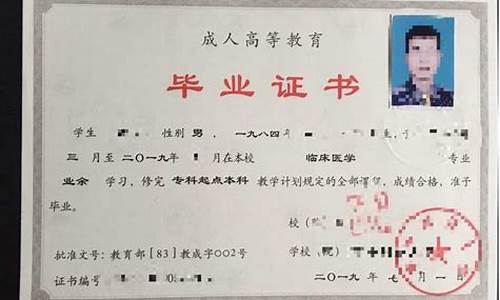 成人高等教育
毕业证书
学生 性别 男，一九八四年 生，于
三 月至二〇一九年 月在本校 临床医学 专业
业余 学习，修完 专科起点本科 教学计划规定的全部课程，成绩合格，准予
毕业。
校（
批准文号：教育部[83]教成字002号 学校（院）
证书编号 二〇一九年七月一日